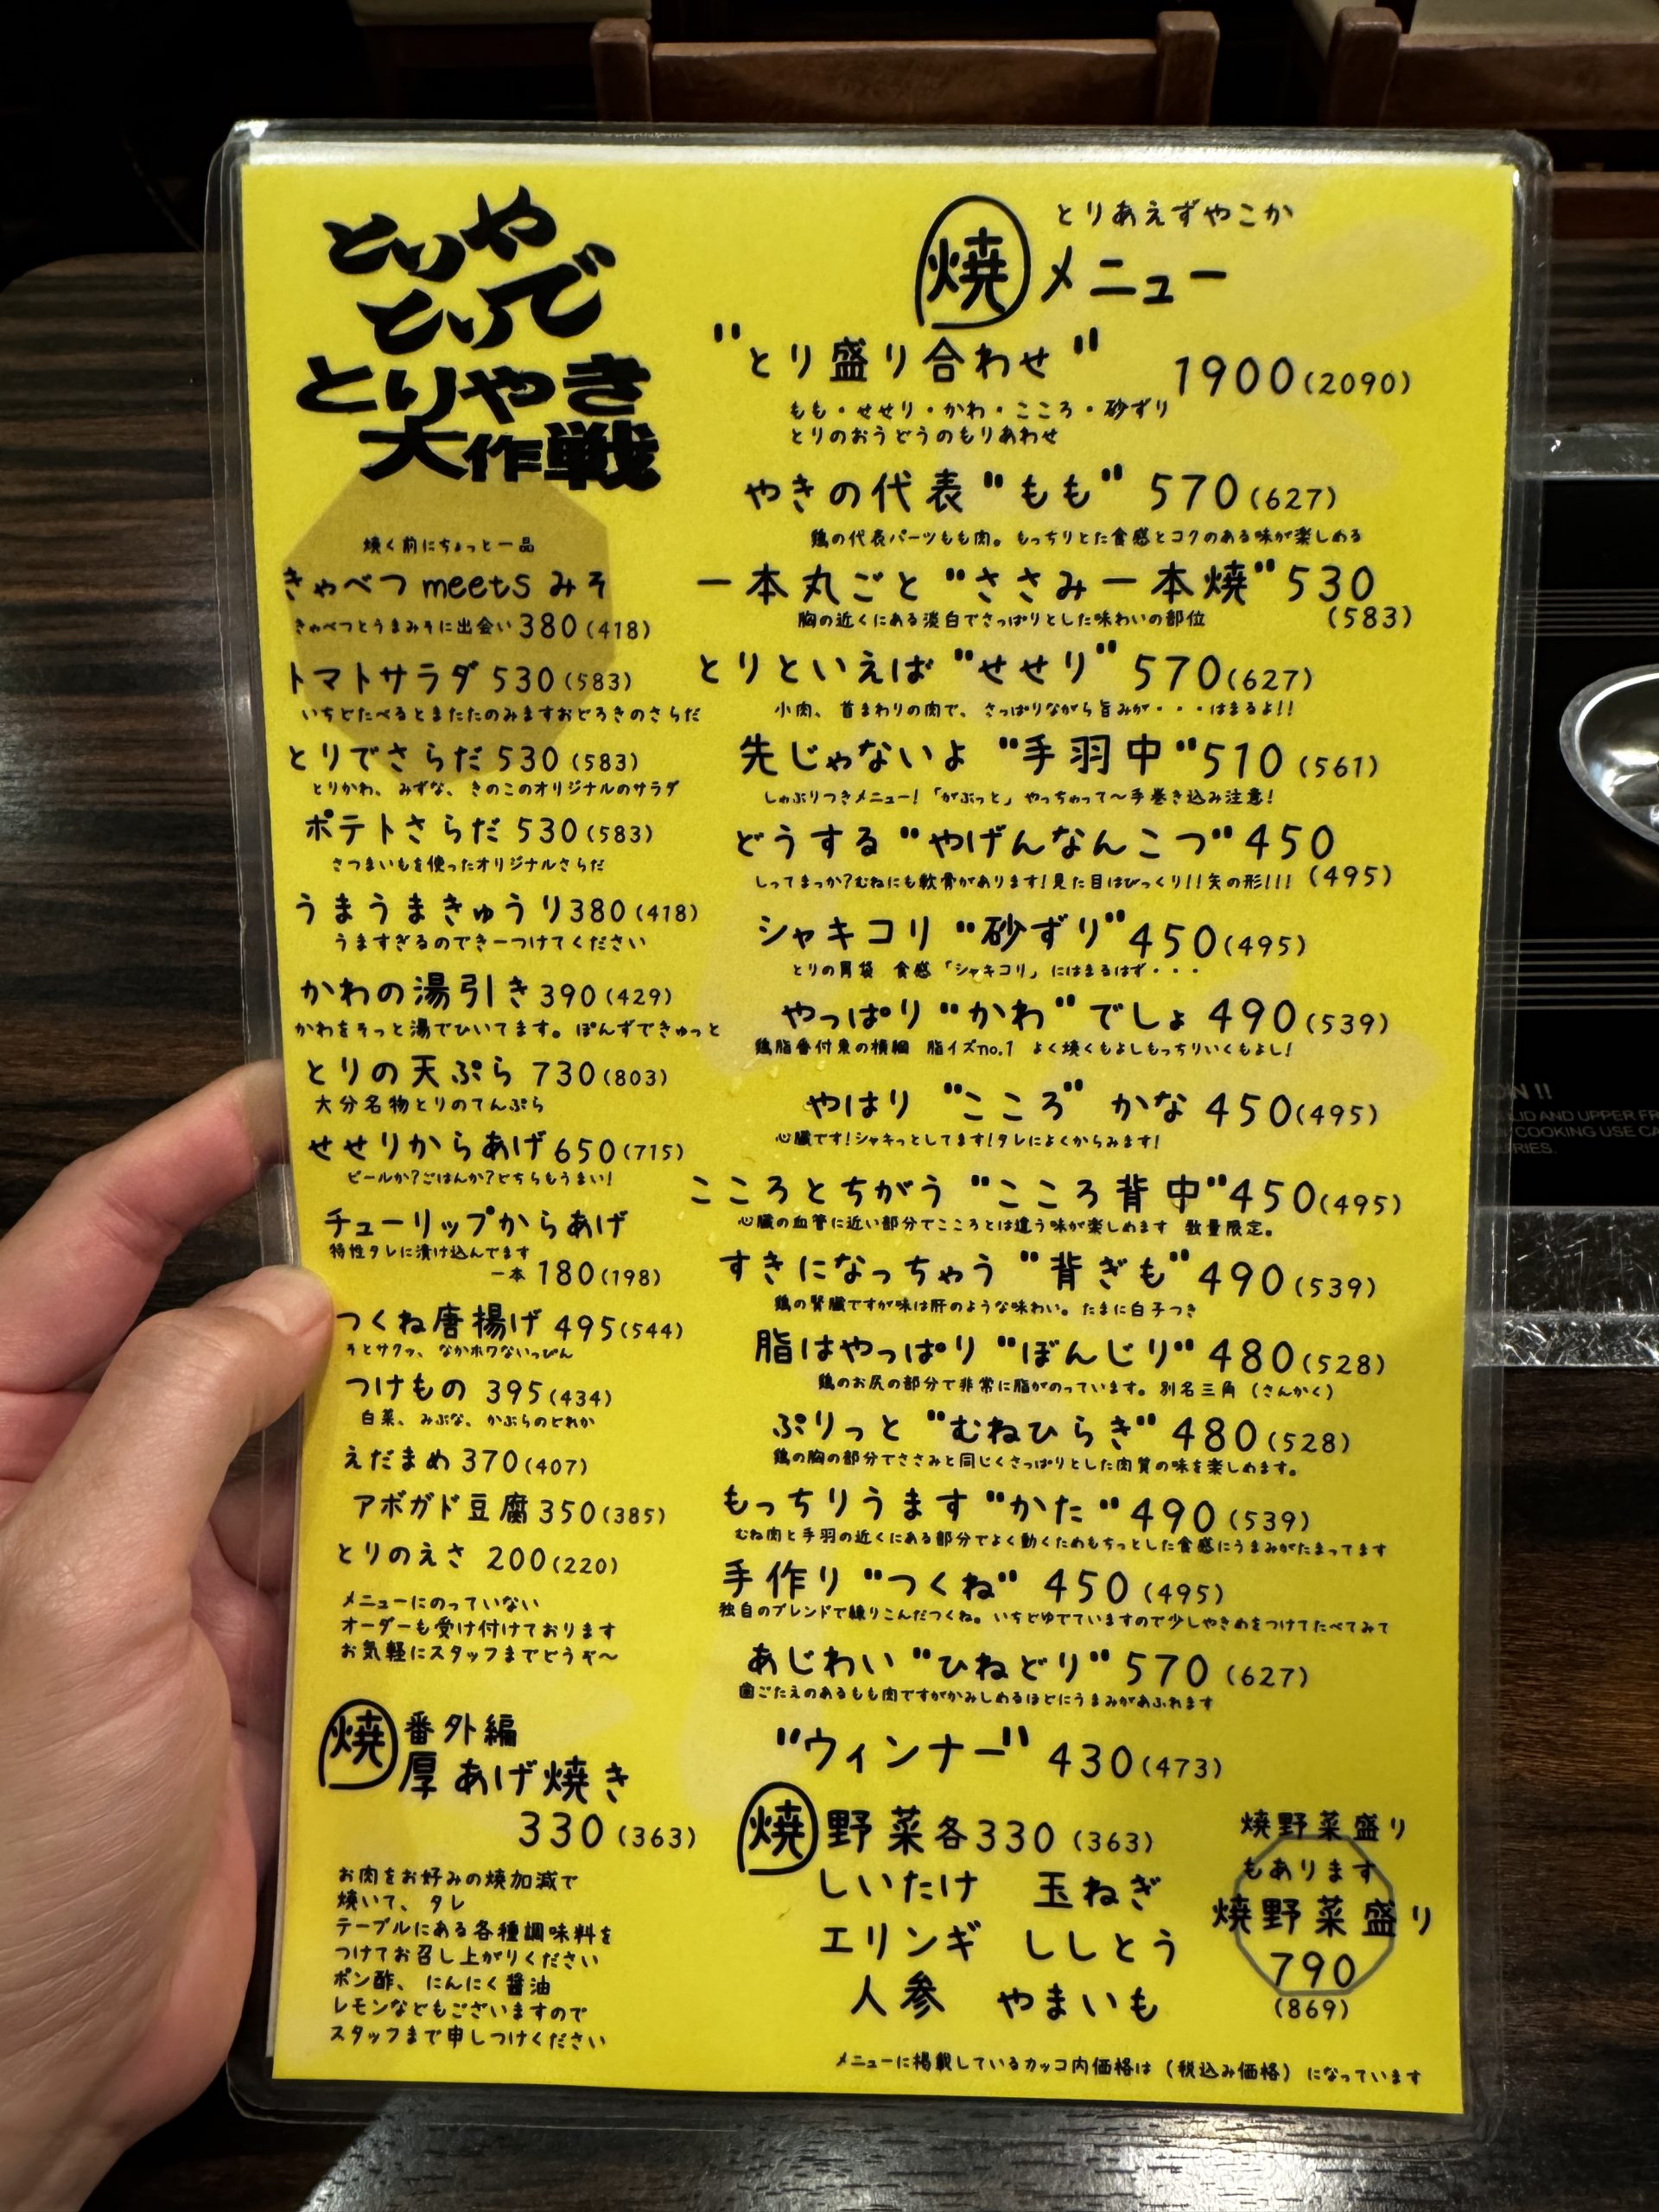 とりや
とりで
とりやき
大作戦
焼く前にちょっと一品
きゃべつ meets みそ
きゃべつとうまみそに出会い 380 (418)
トマトサラダ 530 (583)
いちどたべるとまたたのみますおどろきのさらだ
とりでさらだ 530 (583)
とりかわ、みずな、きのこのオリジナルのサラダ
ポテトさらだ 530 (583)
さつまいもを使ったオリジナルさらだ
うまうまきゅうり 380 (418)
うますぎるのできーつけてください
かわの湯引き 390 (429)
かわをそっと湯でひいてます。ぽんずできゅっと
とりの天ぷら 730 (803)
大分名物とりのてんぷら
せせりからあげ 650 (715)
ビールか?ごはんか?どちらもうまい!
チューリップからあげ
特性タレに漬け込んでます
一本 180 (198)
つくね唐揚げ 495 (544)
そとサクッ、なかホワないっぴん
つけもの 395 (434)
白菜、みぶな、かぶらのどれか
えだまめ 370 (407)
アボガド豆腐 350 (385)
とりのえさ 200 (220)
メニューにのっていない
オーダーも受け付けております
お気軽にスタッフまでどうぞ〜
焼 番外編
厚あげ焼き
330 (363)
お肉をお好みの焼加減で
焼いて、タレ
テーブルにある各種調味料を
つけてお召し上がりください
ポン酢、にんにく醤油
レモンなどもございますので
スタッフまで申しつけください
とりあえずやこか
焼 メニュー
"とり盛り合わせ" 1900 (2090)
もも・せせり・かわ・こころ・砂ずり
とりのおうどうのもりあわせ
やきの代表"もも" 570 (627)
鶏の代表パーツもも肉。もっちりとた食感とコクのある味が楽しめる
一本丸ごと"ささみ一本焼" 530
(583)
胸の近くにある淡白でさっぱりとした味わいの部位
とりといえば"せせり" 570 (627)
小肉、首まわりの肉で、さっぱりながら旨みが・・・はまるよ!!
先じゃないよ"手羽中" 510 (561)
しゃぶりつきメニュー!「がぶっと」やっちゃって〜手巻き込み注意!
どうする"やげんなんこつ" 450
(495)
しってまっか?むねにも軟骨があります!見た目はびっくり!!矢の形!!!
シャキコリ"砂ずり" 450 (495)
とりの胃袋 食感「シャキコリ」にはまるはず・・・
やっぱり"かわ"でしょ 490 (539)
鶏脂番付東の横綱 脂イズno.1 よく焼くもよしもっちりいくもよし!
やはり"こころ"かな 450 (495)
心臓です!シャキっとしてます!タレによくからみます!
こころとちがう"こころ背中" 450 (495)
心臓の血管に近い部分でこころとは違う味が楽しめます 数量限定。
すきになっちゃう"背ぎも" 490 (539)
鶏の腎臓ですが味は肝のような味わい。たまに白子つき
脂はやっぱり"ぼんじり" 480 (528)
鶏のお尻の部分で非常に脂がのっています。別名三角(さんかく)
ぷりっと"むねひらき" 480 (528)
鶏の胸の部分でささみと同じくさっぱりとした肉質の味を楽しめます。
もっちりうます"かた" 490 (539)
むね肉と手羽の近くにある部分でよく動くためもちっとした食感にうまみがたまってます
手作り"つくね" 450 (495)
独自のブレンドで練りこんだつくね。いちどゆでていますので少しやきめをつけてたべてみて
あじわい"ひねどり" 570 (627)
歯ごたえのあるもも肉ですがかみしめるほどにうまみがあふれます
"ウィンナー" 430 (473)
焼 野菜各330 (363)
しいたけ 玉ねぎ
エリンギ ししとう
人参 やまいも
焼野菜盛り
もあります
焼野菜盛り
790
(869)
メニューに掲載しているカッコ内価格は(税込み価格)になっています
COOKING USE